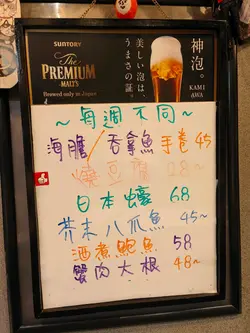 SUNTORY
The
PREMIUM
MALT'S
Brewed only in Japan
美しい泡は、
うまさの証。
神泡。
KAMI
AWA
～每週不同～
海膽 吞拿魚手卷 45
燒豆腐 28～
日本蠔 68
芥末八爪魚 45～
酒煮鮑魚 58
蟹肉大根 48～